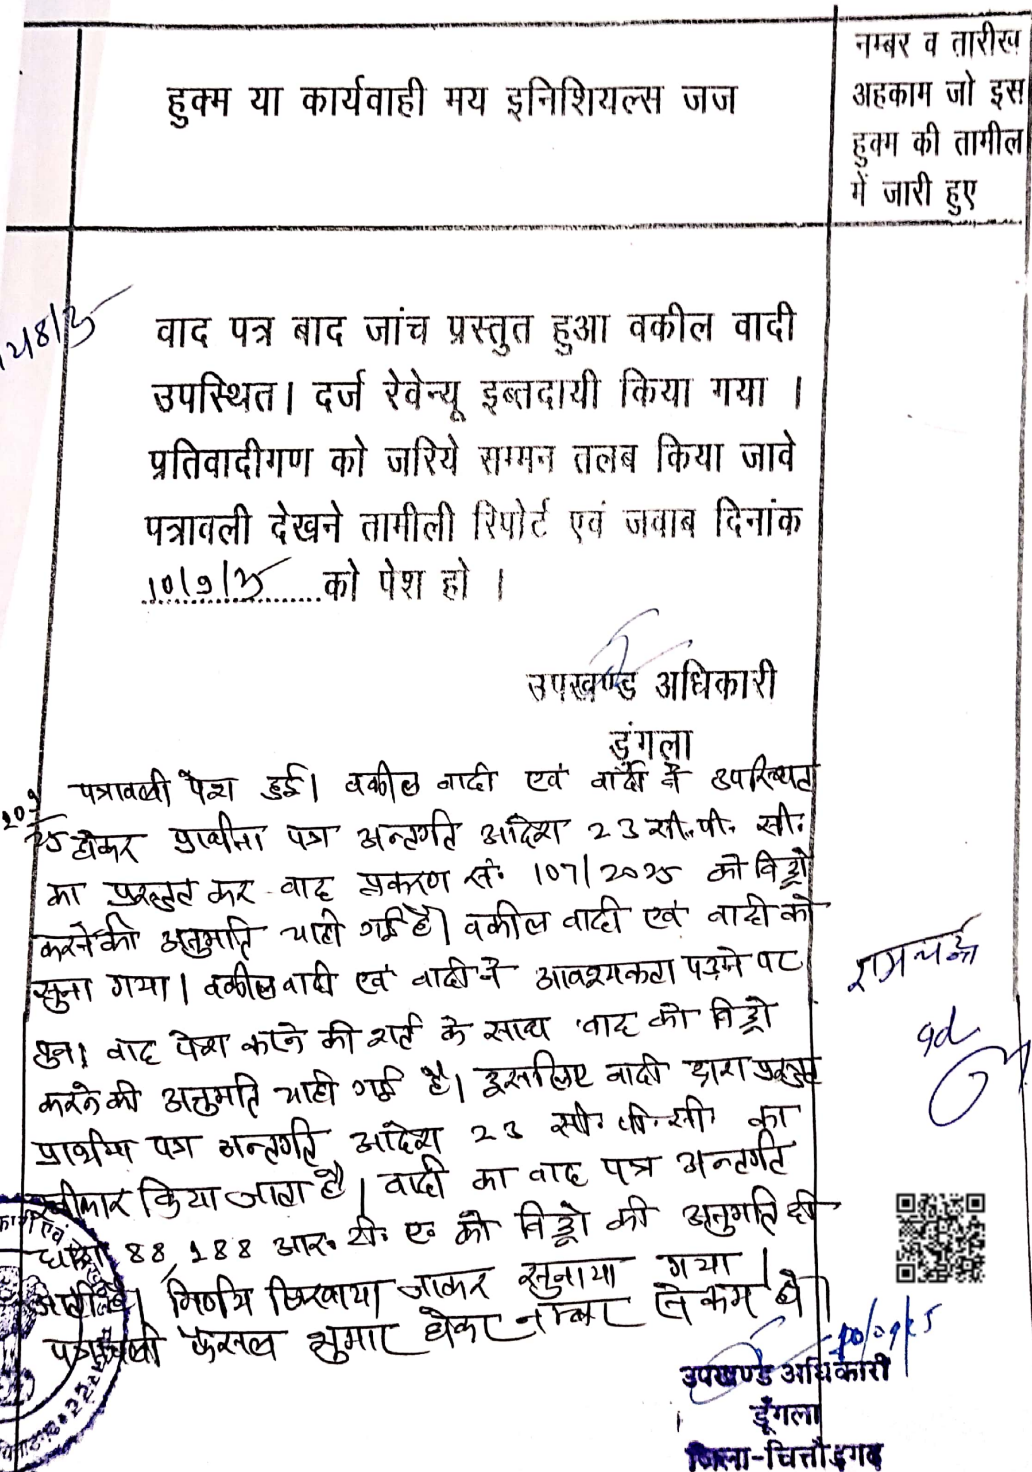 हुक्म या कार्यवाही मय इनिशियल्स जज
नम्बर व तारीख
अहकाम जो इस
हुक्म की तामील
में जारी हुए
वाद पत्र बाद जांच प्रस्तुत हुआ वकील वादी
उपस्थित। दर्ज रेवेन्यू इब्तदायी किया गया ।
प्रतिवादीगण को जरिये सम्मन तलब किया जावे
पत्रावली देखने तामीली रिपोर्ट एवं जवाब दिनांक
10/9/25 को पेश हो ।
उपखण्ड अधिकारी
डूंगला
पत्रावली पेश हुई। वकील वादी एवं वादी ने उपस्थित
होकर प्रार्थना पत्र अन्तर्गत आदेश 23 सी. पी. सी.
का प्रस्तुत कर वाद प्रकरण सं. 107/2025 को विड्रो
करने की अनुमति चाही गई है। वकील वादी एवं वादी को
सुना गया। वकील वादी एवं वादी ने आवश्यकता पडने पर
पुनः वाद पेश करने की शर्त के साथ वाद को विड्रो
करने की अनुमति चाही गई है। इसलिए वादी द्वारा प्रस्तुत
प्रार्थना पत्र अन्तर्गत आदेश 23 सी. पी. सी. का
स्वीकार किया जाता है। वादी का वाद पत्र अन्तर्गत
धारा 88, 188 आर. टी. ए. को विड्रो की अनुमति दी
जाती है। निर्णय लिखवाया जाकर सुनाया गया।
पत्रावली फैसल शुमार होकर नम्बर से कम हो।
रामचन्द्र
उपखण्ड अधिकारी
डूँगला
जिला-चित्तौड़गढ़